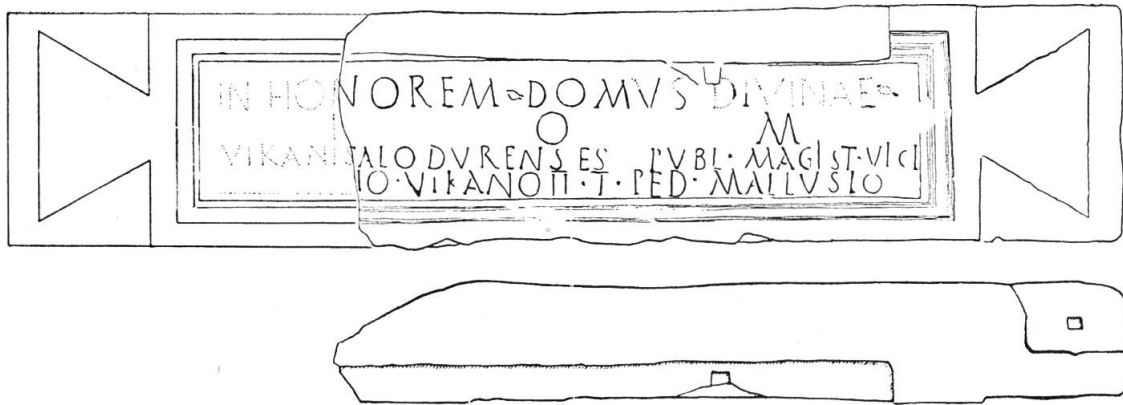 IN HONOREM DOMVS DIVINAE
O M
VIKANI SALODVRENSES PVBL· MAGIST·VICI
IO·VIKANO II·T·PED·MALLVSIO